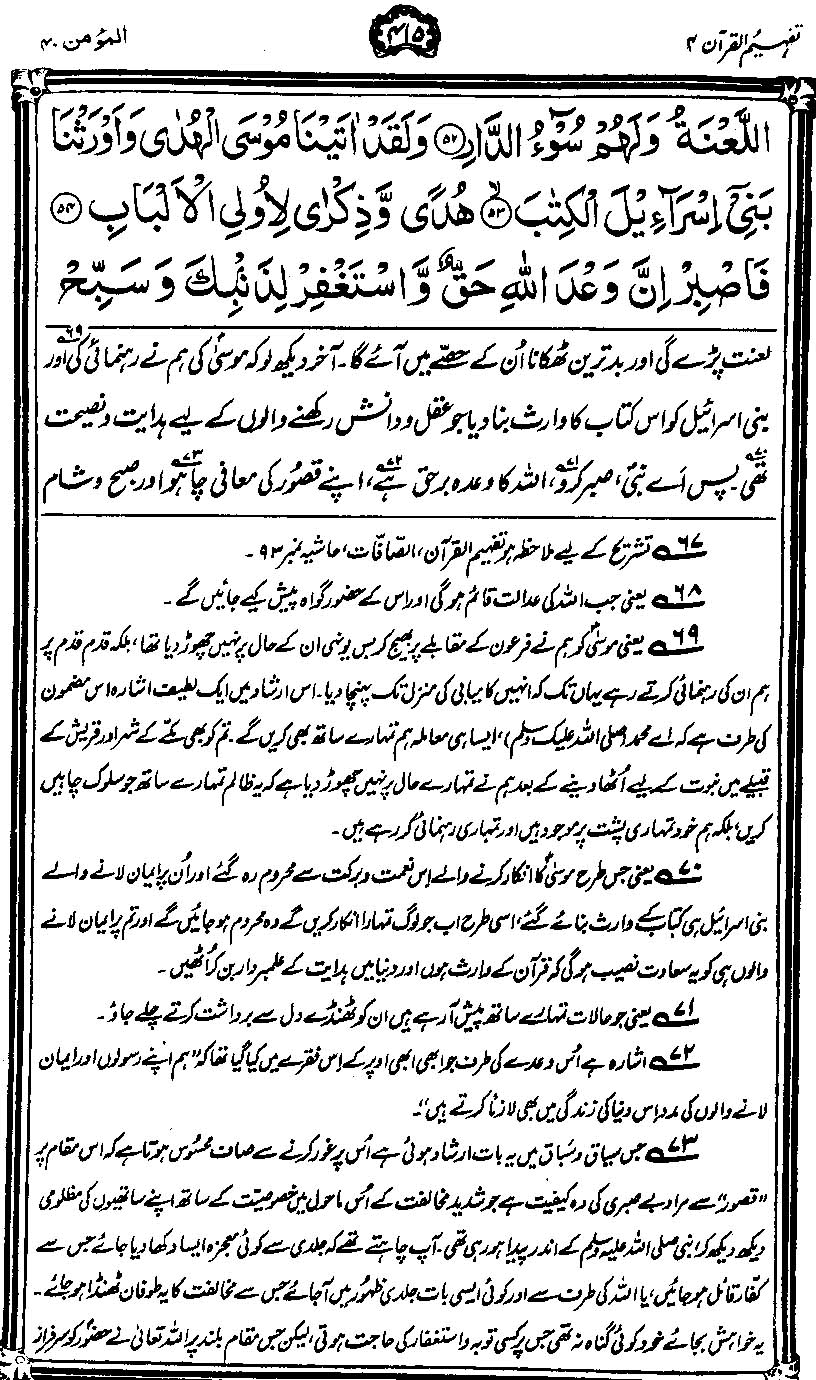 تفہیم القرآن ۴
۴۱۵
المؤمن ۴۰
اللَّعْنَةُ وَلَهُمْ سُوْٓءُ الدَّارِ ۝۵۲ وَلَقَدْ اٰتَيْنَا مُوْسَى الْهُدٰى وَاَوْرَثْنَا
بَنِيْٓ اِسْرَآءِيْلَ الْكِتٰبَ ۝۵۳ هُدًى وَّذِكْرٰى لِاُولِي الْاَلْبَابِ ۝۵۴
فَاصْبِرْ اِنَّ وَعْدَ اللّٰهِ حَقٌّ وَّاسْتَغْفِرْ لِذَنْۢبِكَ وَسَبِّحْ
لعنت پڑے گی اور بدترین ٹھکانا اُن کے حصّے میں آئے گا۔ آخر دیکھ لو کہ موسیٰؑ کی ہم نے رہنمائی کی۶۹ اور
بنی اسرائیل کو اس کتاب کا وارث بنا دیا جو عقل و دانش رکھنے والوں کے لیے ہدایت و نصیحت
تھی۷۰۔ پس اَے نبیؐ، صبر کرو۷۱، اللہ کا وعدہ برحق ہے۷۲، اپنے قصُور کی معافی چاہو۷۳ اور صبح و شام
۶۷ تشریح کے لیے ملاحظہ ہو تفہیم القرآن، الصّافّات، حاشیہ نمبر ۹۳۔
۶۸ یعنی جب اللہ کی عدالت قائم ہوگی اور اس کے حضور گواہ پیش کیے جائیں گے۔
۶۹ یعنی موسیٰؑ کو ہم نے فرعون کے مقابلے پر بھیج کر بس یونہی ان کے حال پر نہیں چھوڑ دیا تھا، بلکہ قدم قدم پر
ہم ان کی رہنمائی کرتے رہے یہاں تک کہ انہیں کامیابی کی منزل تک پہنچا دیا۔ اس ارشاد میں ایک لطیف اشارہ اس مضمون
کی طرف ہے کہ اے محمدؐ (صلی اللہ علیک وسلم)، ایسا ہی معاملہ ہم تمہارے ساتھ بھی کریں گے۔ تم کو بھی مکّے کے شہر اور قریش کے
قبیلے میں نبوت کے لیے اُٹھا دینے کے بعد ہم نے تمہارے حال پر نہیں چھوڑ دیا ہے کہ یہ ظالم تمہارے ساتھ جو سلوک چاہیں
کریں، بلکہ ہم خود تمہاری پشت پر موجود ہیں اور تمہاری رہنمائی کر رہے ہیں۔
۷۰ یعنی جس طرح موسیٰؑ کا انکار کرنے والے اِس نعمت و برکت سے محروم رہ گئے اور اُن پر ایمان لانے والے
بنی اسرائیل ہی کتاب کے وارث بنائے گئے، اسی طرح اب جو لوگ تمہارا انکار کریں گے وہ محروم ہو جائیں گے اور تم پر ایمان لانے
والوں ہی کو یہ سعادت نصیب ہوگی کہ قرآن کے وارث ہوں اور دنیا میں ہدایت کے علمبردار بن کر اُٹھیں۔
۷۱ یعنی جو حالات تمہارے ساتھ پیش آ رہے ہیں ان کو ٹھنڈے دل سے برداشت کرتے چلے جاؤ۔
۷۲ اشارہ ہے اُس وعدے کی طرف جو ابھی ابھی اوپر کے اِس فقرے میں کیا گیا تھا کہ ”ہم اپنے رسولوں اور ایمان
لانے والوں کی مدد اس دنیا کی زندگی میں بھی لازمًا کرتے ہیں“۔
۷۳ جس سیاق و سَباق میں یہ بات ارشاد ہوئی ہے اُس پر غور کرنے سے صاف محسُوس ہوتا ہے کہ اس مقام پر
”قصور“ سے مراد بے صبری کی وہ کیفیت ہے جو شدید مخالفت کے اُس ماحول میں خصوصیّت کے ساتھ اپنے ساتھیوں کی مظلومی
دیکھ دیکھ کر نبی صلی اللہ علیہ وسلم کے اندر پیدا ہو رہی تھی۔ آپ چاہتے تھے کہ جلدی سے کوئی معجزہ ایسا دکھا دیا جائے جس سے
کفّار قائل ہو جائیں، یا اللہ کی طرف سے اور کوئی ایسی بات جلدی ظہُور میں آجائے جس سے مخالفت کا یہ طوفان ٹھنڈا ہو جائے۔
یہ خواہش بجائے خود کوئی گناہ نہ تھی جس پر کسی توبہ و استغفار کی حاجت ہوتی، لیکن جس مقام بلند پر اللہ تعالیٰ نے حضورؐ کو سرفراز